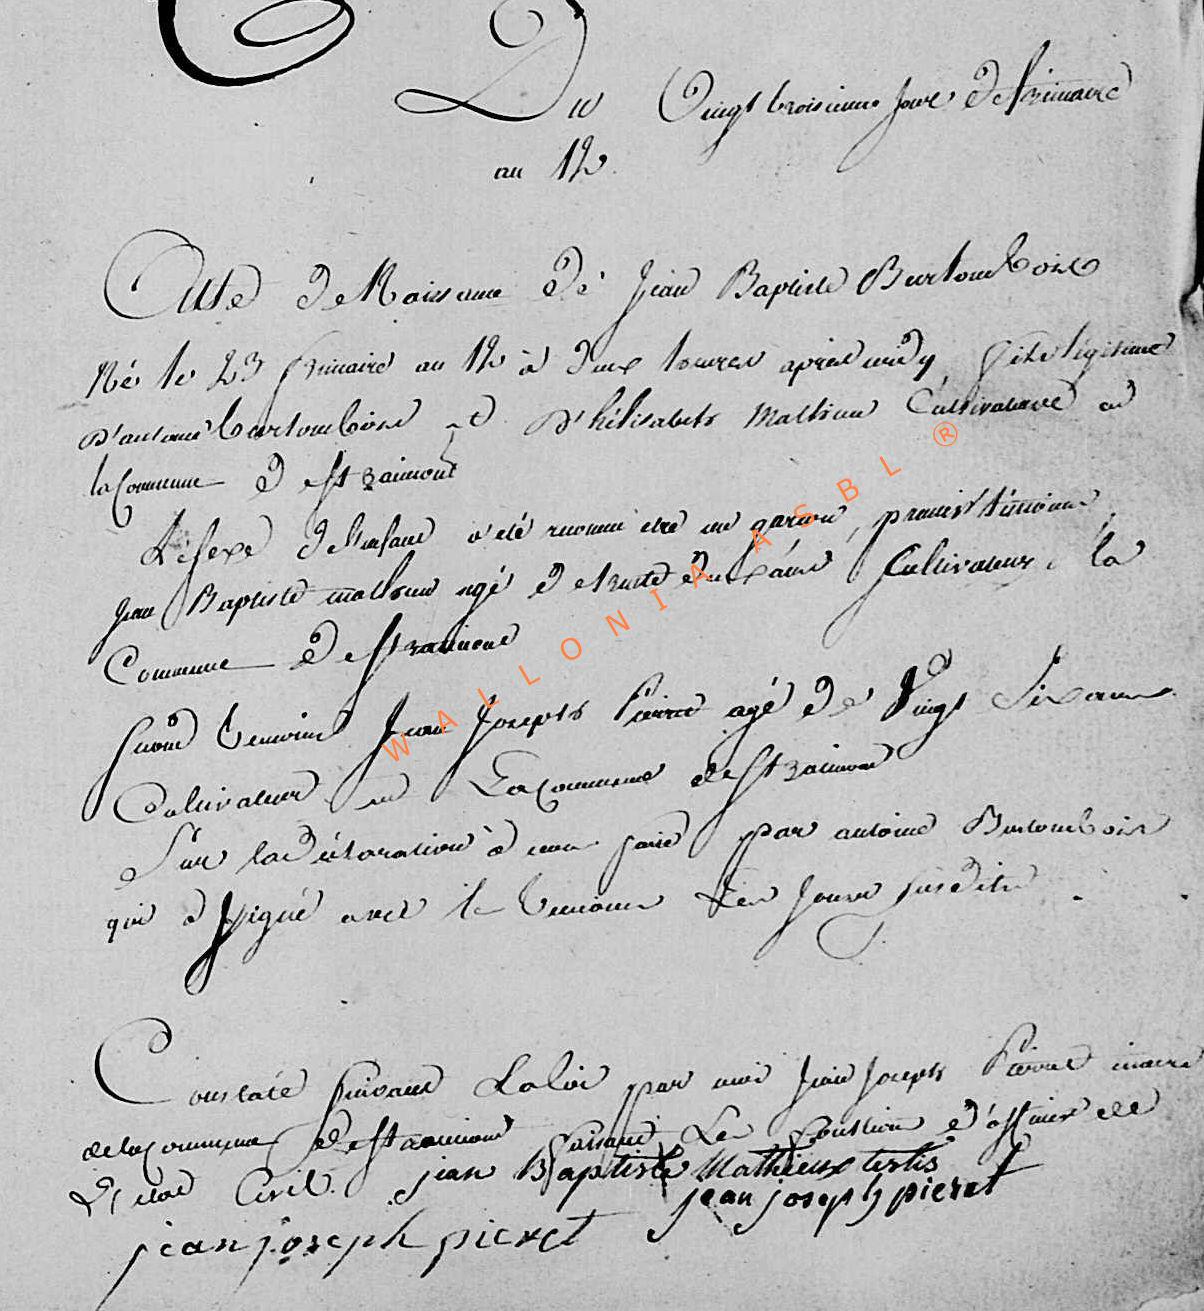 Du Vingt troisieme jour de frimaire
an 12
Acte de Naissance de jean Baptiste Burtombois
Né le 23 frimaire an 12 à deux heures après midy fils légitime
d'antoine burtombois et d'hélisabeth Mathieu Cultivateur en
la Commune de straimont
Le sexe de l'enfant a été reconnu etre un garçon, premier témoins
jean Baptiste mathieu agé de trente deux ans Cultivateur la
Commune de straimont
second temoin jean joseph Pierret agé de Vingt Six ans
Cultivateur en La Commune de straimont
Sur la déclaration à nous faite par antoine Burtombois
qui a signé avec le temoins Les jours susdits
Constaté suivant La loi par moi jean joseph Pierret maire
de la commune de straimont faisant Les fonction d'officier de
L'etat Civil. jean Baptiste Mathieux testis
jean joseph pieret
jean joseph pieret
WALLONIA ASBL ®